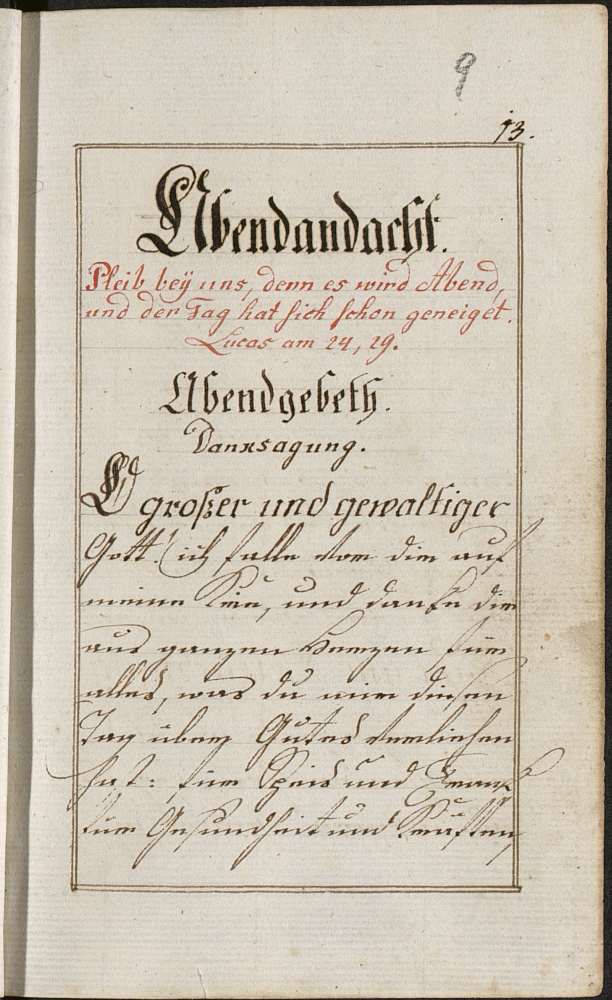 9
13.
Abendandacht.
Pleib beÿ uns, denn es wird Abend,
und der Tag hat sich schon geneiget.
Lucas am 24, 29.
Abendgebeth.
Danksagung.
O großer und gewaltiger
Gott! ich falle vor dir auf
meine Knie, und danke dir
aus ganzen Herzen für
alles, was du mir diesen
Tag über Gutes verliehen
hast: für Speis und Trank
für Gesundheit und Kräften,